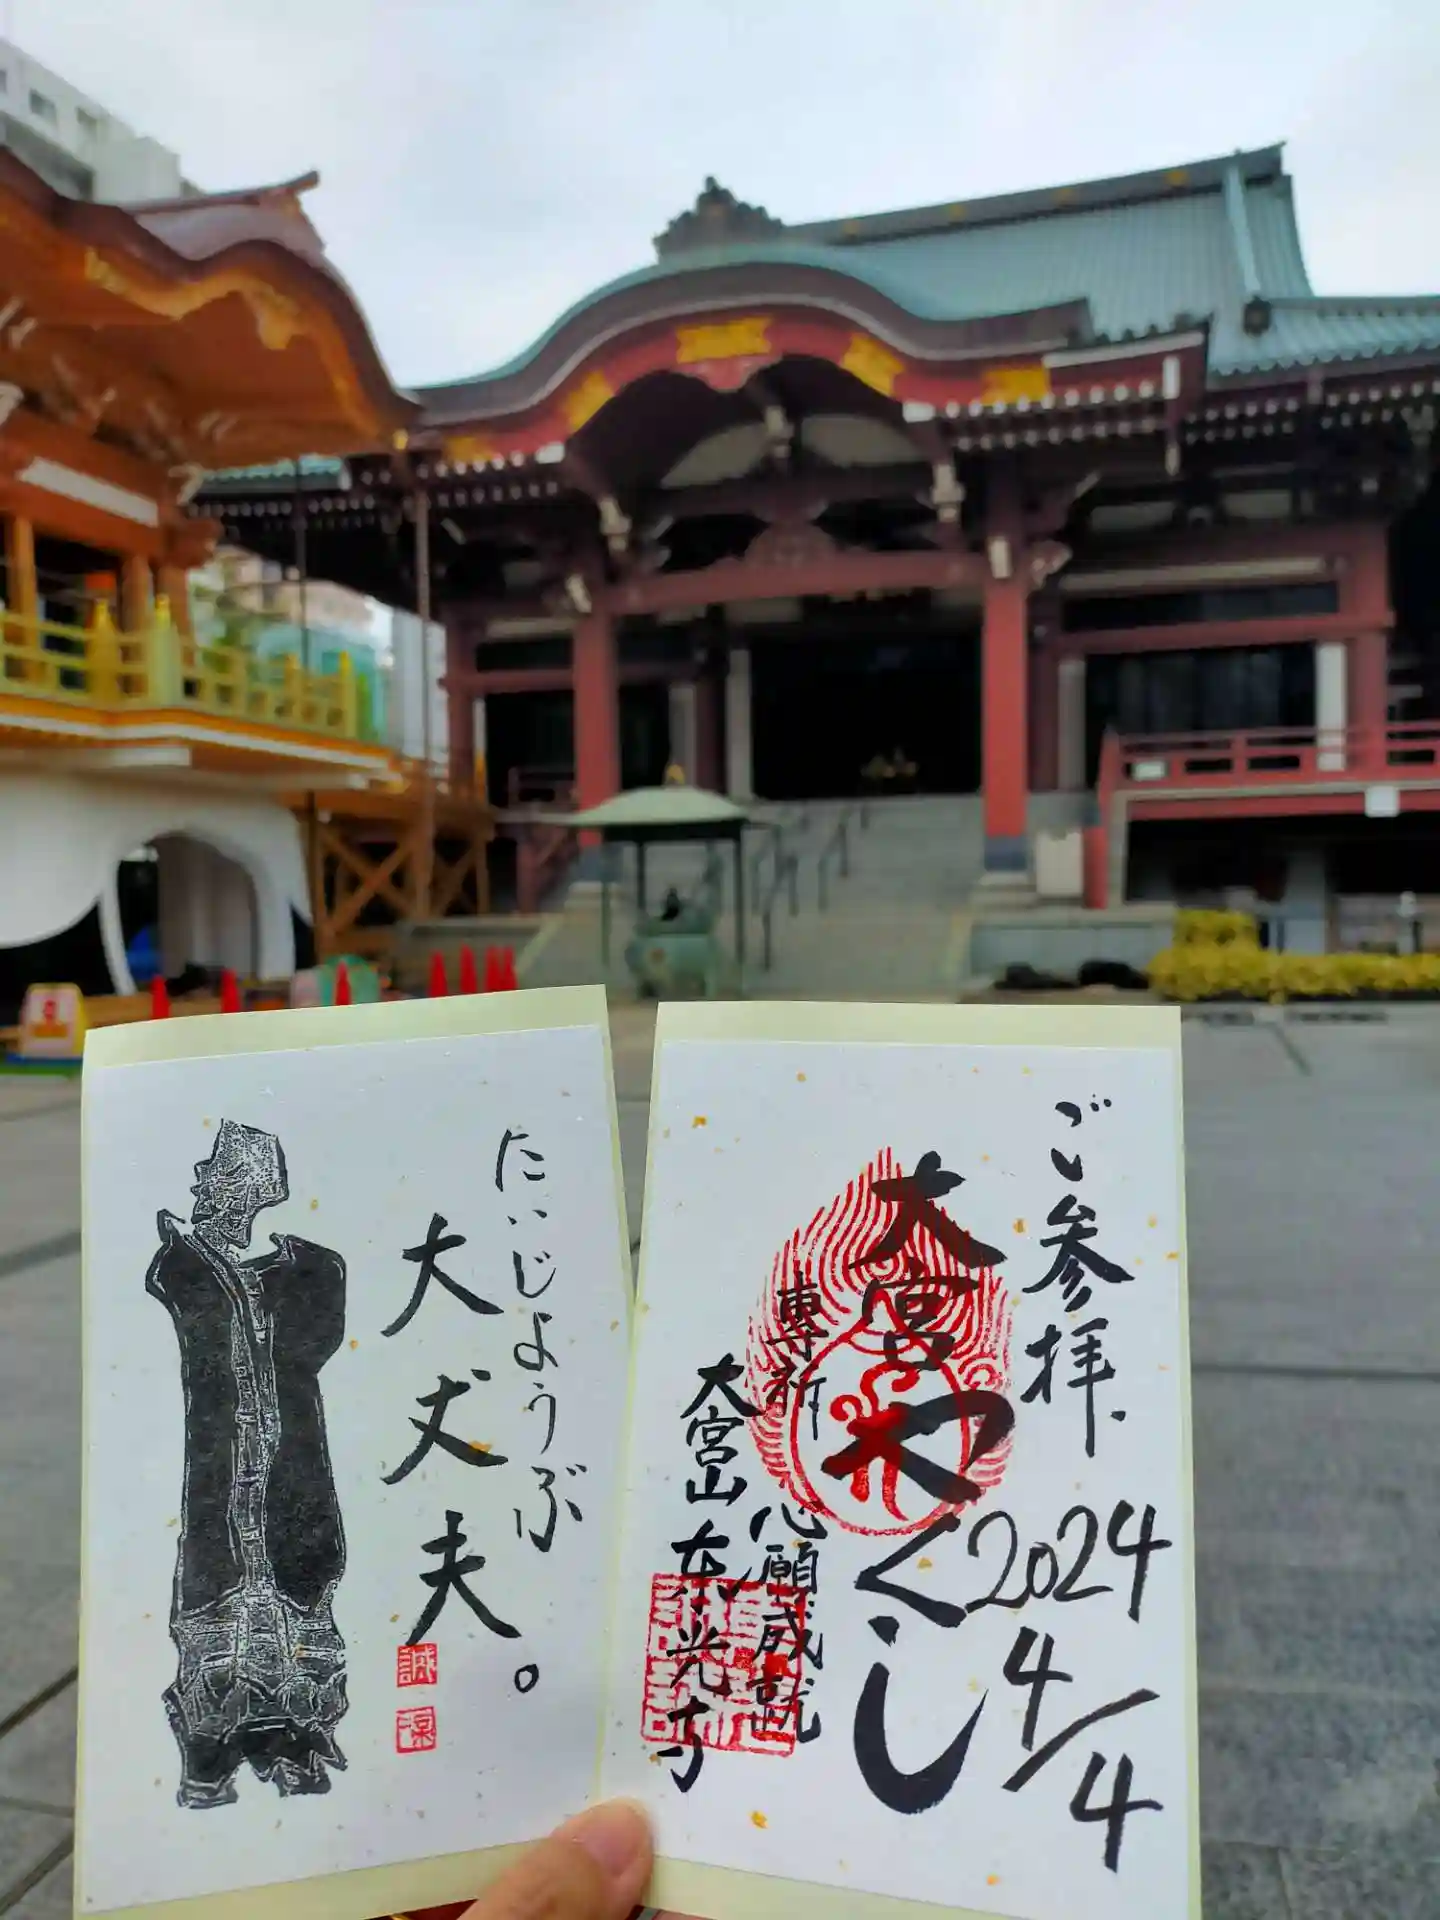 だいじょうぶ
大丈夫。
ご参拝
2024
4/4
大宮やくし
専祈 心願成就
大宮山 东光寺